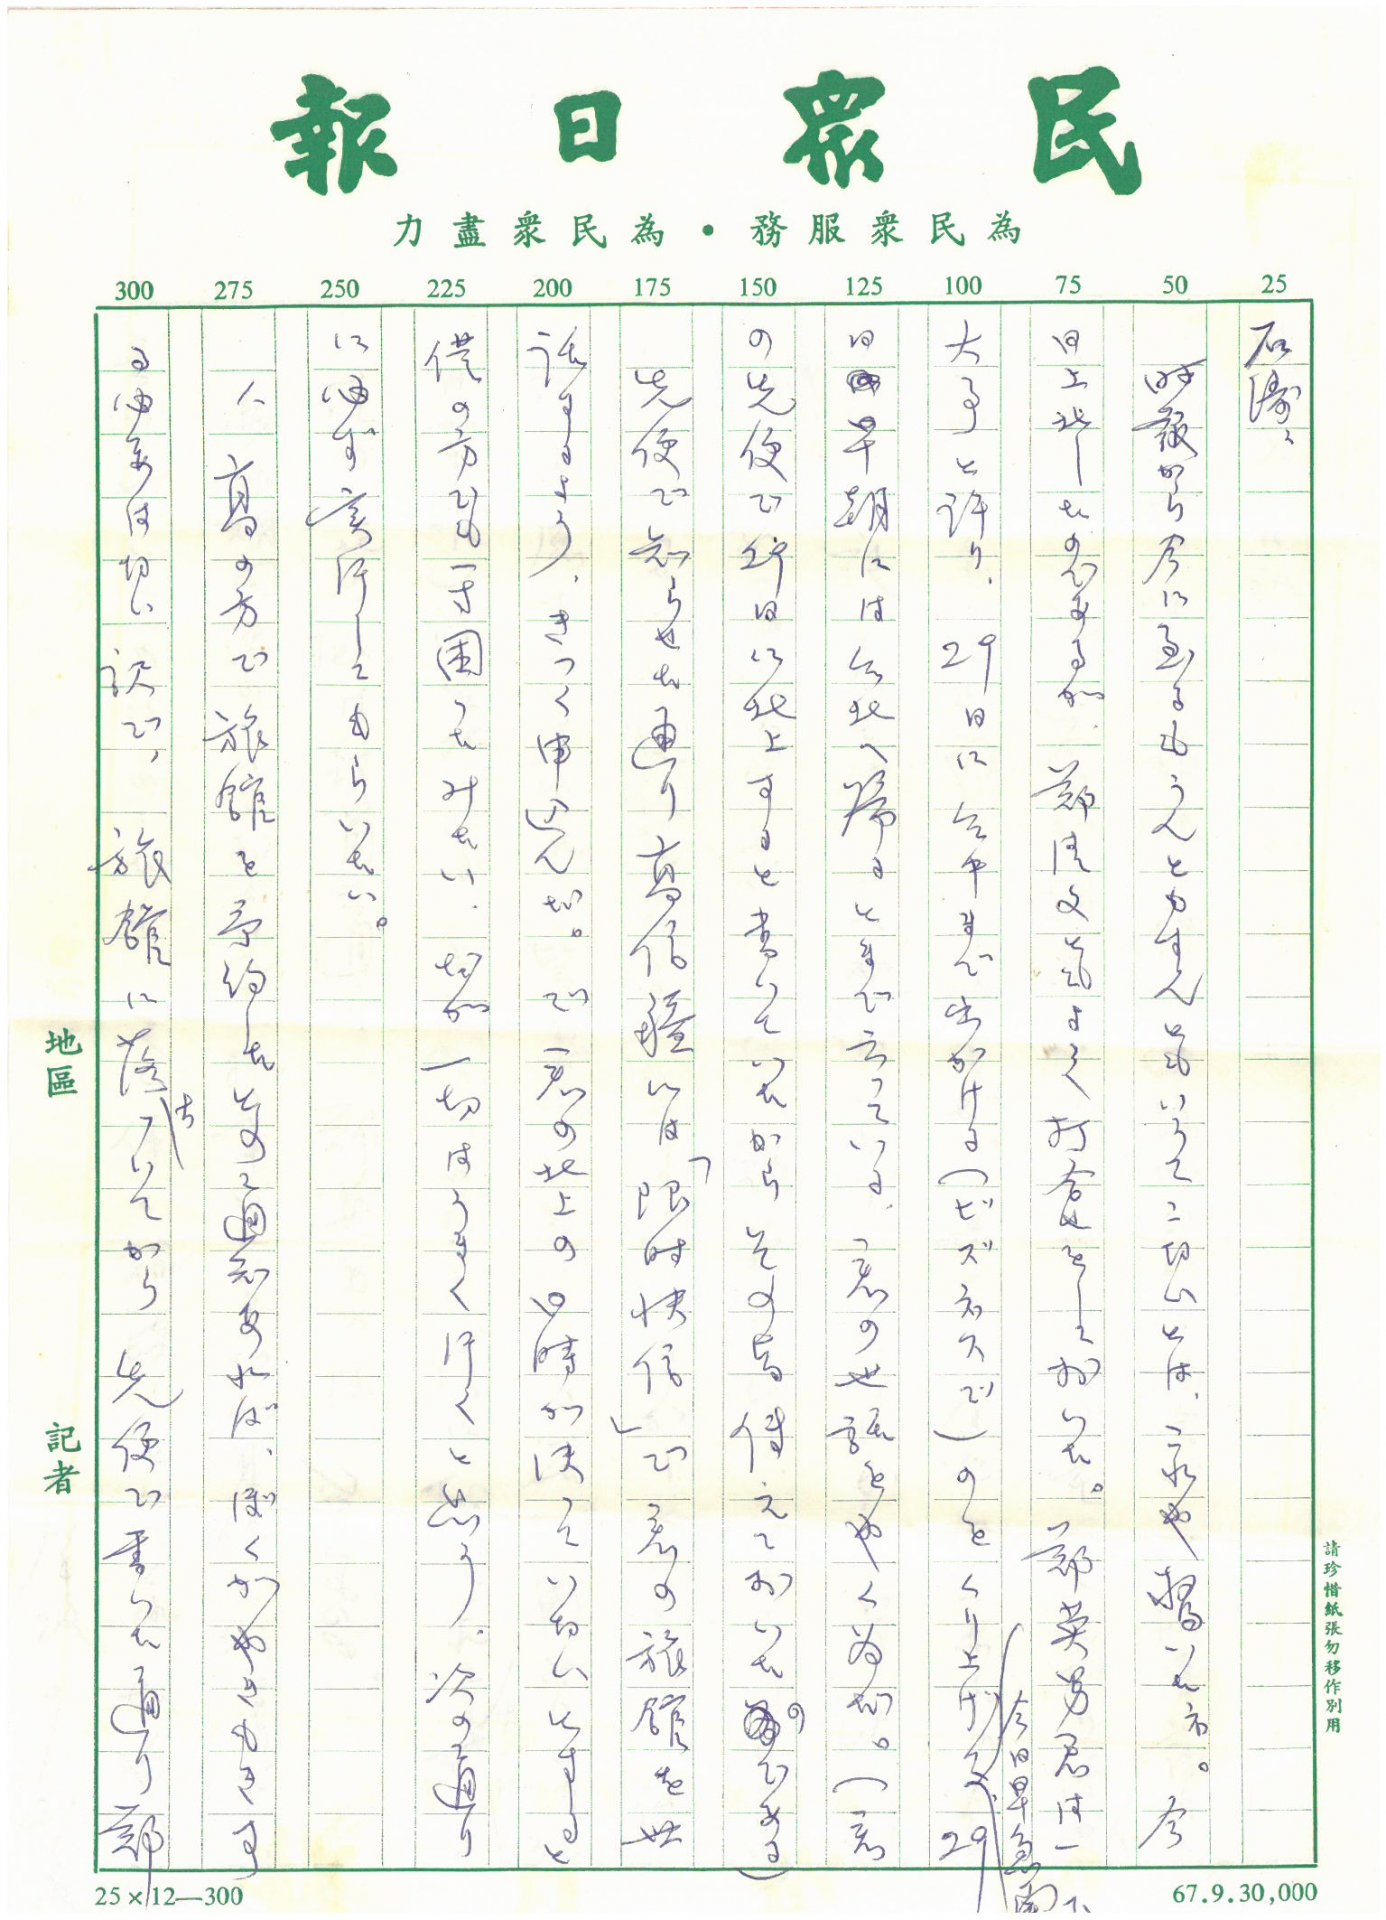 民眾日報
為民眾服務・為民眾盡力
25 50 75 100 125 150 175 200 225 250 275 300
今に至るもうんともすんともいって
日上北したのであるが、鄭清文ともよく打合をしておいた。鄭英男君は一
今日早急南下
大事と許り、29日に台中まで出かける(ビズネスで)のをくり上げ、29
日早朝には台北へ帰るとまで云っている、君の世話をやく為だ。(君
の先便で29日に北上すると書いていたからその旨伝えておいたのである)
先便で知らせた通り高信疆には「限時快信」で君の旅館を世
話するよう、きつく申込んだ。で君の北上の日時が決っていないとすると
僕の方でも一寸困ったみたい、だが一切はうまく行くと思う。次の通り
に必ず実行してもらいたい。
高の方で旅館を予約したとの通知あれば、ぼくが
る必要は切い訳で、旅館に落ちついてから先便で書いた通り鄭
地區
記者
請珍惜紙張勿移作別用
25×12—300
67.9.30,000